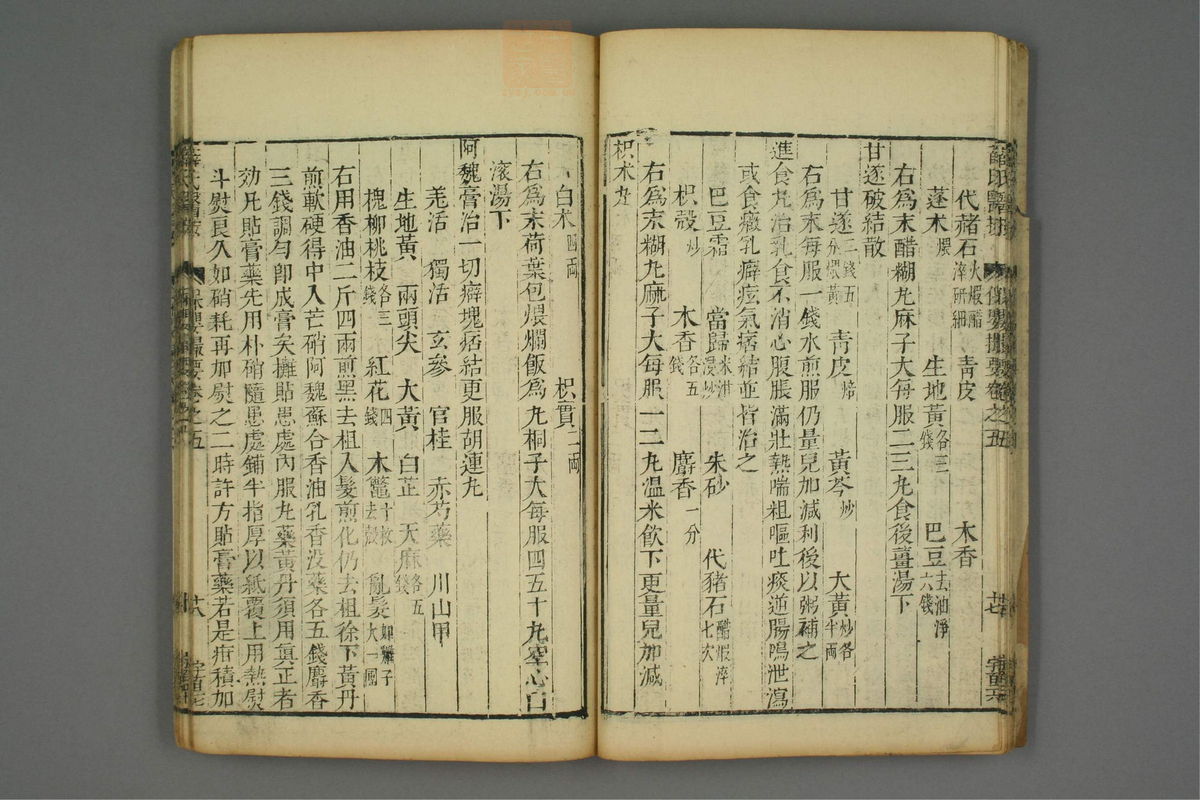 代赭石火煆醋淬研細　青皮　木香
蓬朮煨　生地黃各三錢　巴豆去油淨六錢
右爲末醋糊丸麻子大每服二三丸食後薑湯下
甘遂破結散
甘遂二錢五分煨黃　青皮焙　黃芩炒　大黃炒各半兩
右爲末每服一錢水煎服仍量兒加減利後以粥補之
進食丸治乳食不消心腹脹滿壯熱喘粗嘔吐痰逆腸鳴泄瀉
或食癥乳癖痃氣痞結並皆治之
巴豆霜　當歸米泔浸炒　朱砂　代赭石醋煆淬七次
枳殻炒　木香各五錢　麝香一分
右爲末糊丸麻子大每服一二丸温米飲下更量兒加減
枳术丸
白朮四兩　枳實二兩
右爲末荷葉包煨爛飯爲丸桐子大每服四五十丸空心白
滾湯下
阿魏膏治一切癖塊痞結更服胡連丸
羌活　獨活　玄參　官桂　赤芍藥　川山甲
生地黃　兩頭尖　大黃　白芷　天麻各五錢
槐柳桃枝各三錢　紅花四錢　木鼈十枚去殻　亂髮如雞子大一團
右用香油二斤四兩煎黑去柤入髮煎化仍去柤徐下黃丹
煎軟硬得中入芒硝阿魏蘇合香油乳香没藥各五錢麝香
三錢調匀卽成膏矣攤貼患處內服丸藥黃丹須用眞正者
効凡貼膏藥先用朴硝隨患處鋪半指厚以紙覆上用熱熨
斗熨良久如硝耗再加熨之二時許方貼膏藥若是疳積加
保嬰撮要卷之五